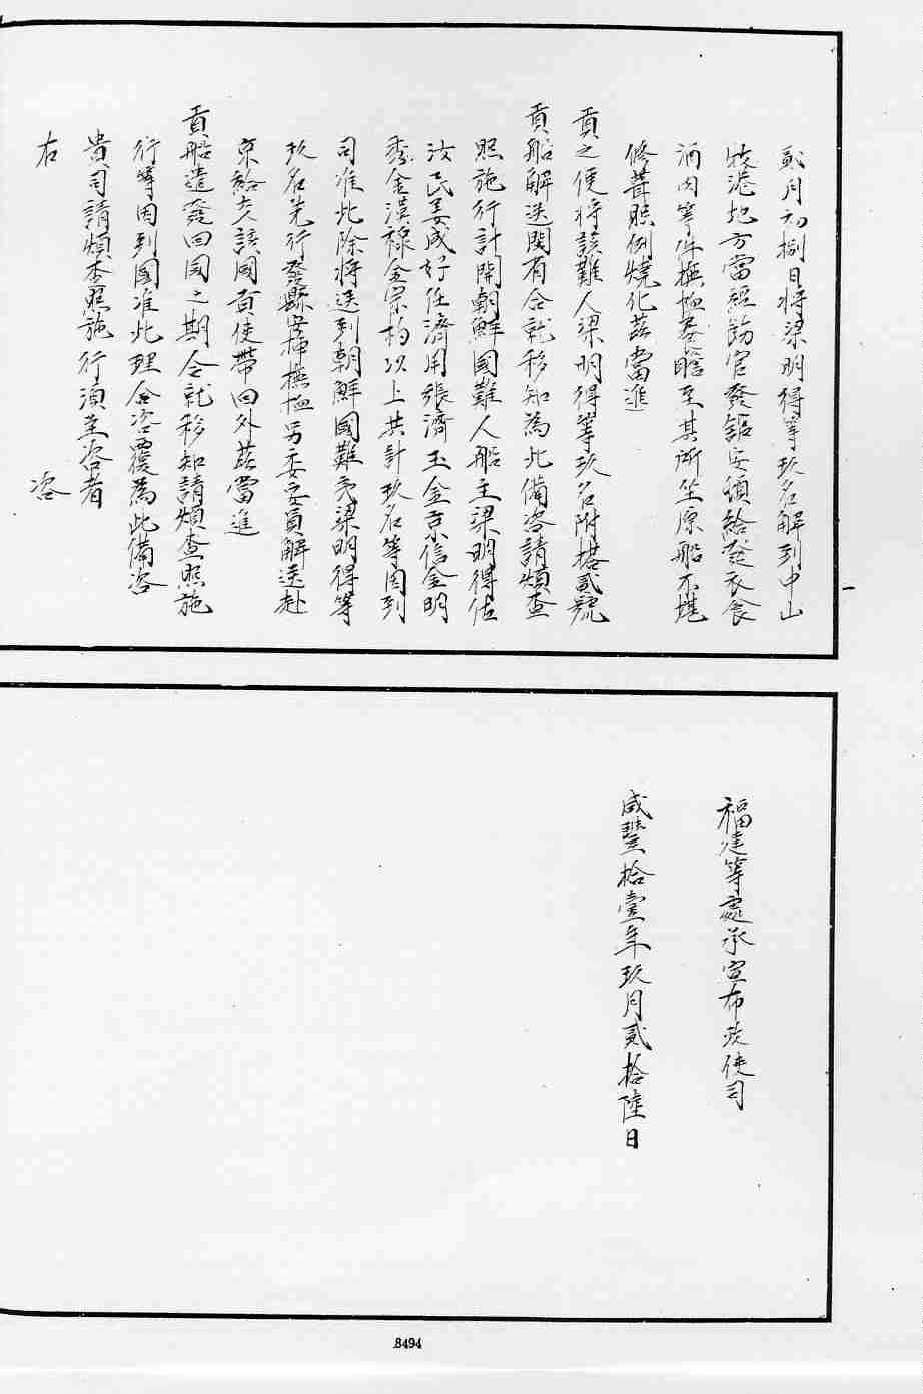 貳月初捌日將梁明得等玖名解到中山
坡港地方當經飭官發館安頓給發衣食
酒肉等件撫恤養贍至其所坐原船不堪
修葺照例燒化茲當進
貢之便將該難人梁明得等玖名附搭貳號
貢船解送閩省合就移知為此備咨請煩查
照施行計開朝鮮國難人船主梁明得佐
汝民姜成好任濟用張濟玉金京信金明
金漢祿金宗杓以上共計玖名等因到
司准此除將送到朝鮮國難民梁明得等
玖名先行發縣安插撫恤另委妥員解送赴
京給該國貢使帶回外茲當進
貢船遣發回國之期合就移知請煩查照施
行等因到國准此理合咨覆為此備咨
貴司請煩查照施行須至咨者
右 咨
福建等處承宣布政使司
咸豐拾壹年玖月貳拾陸日
8494